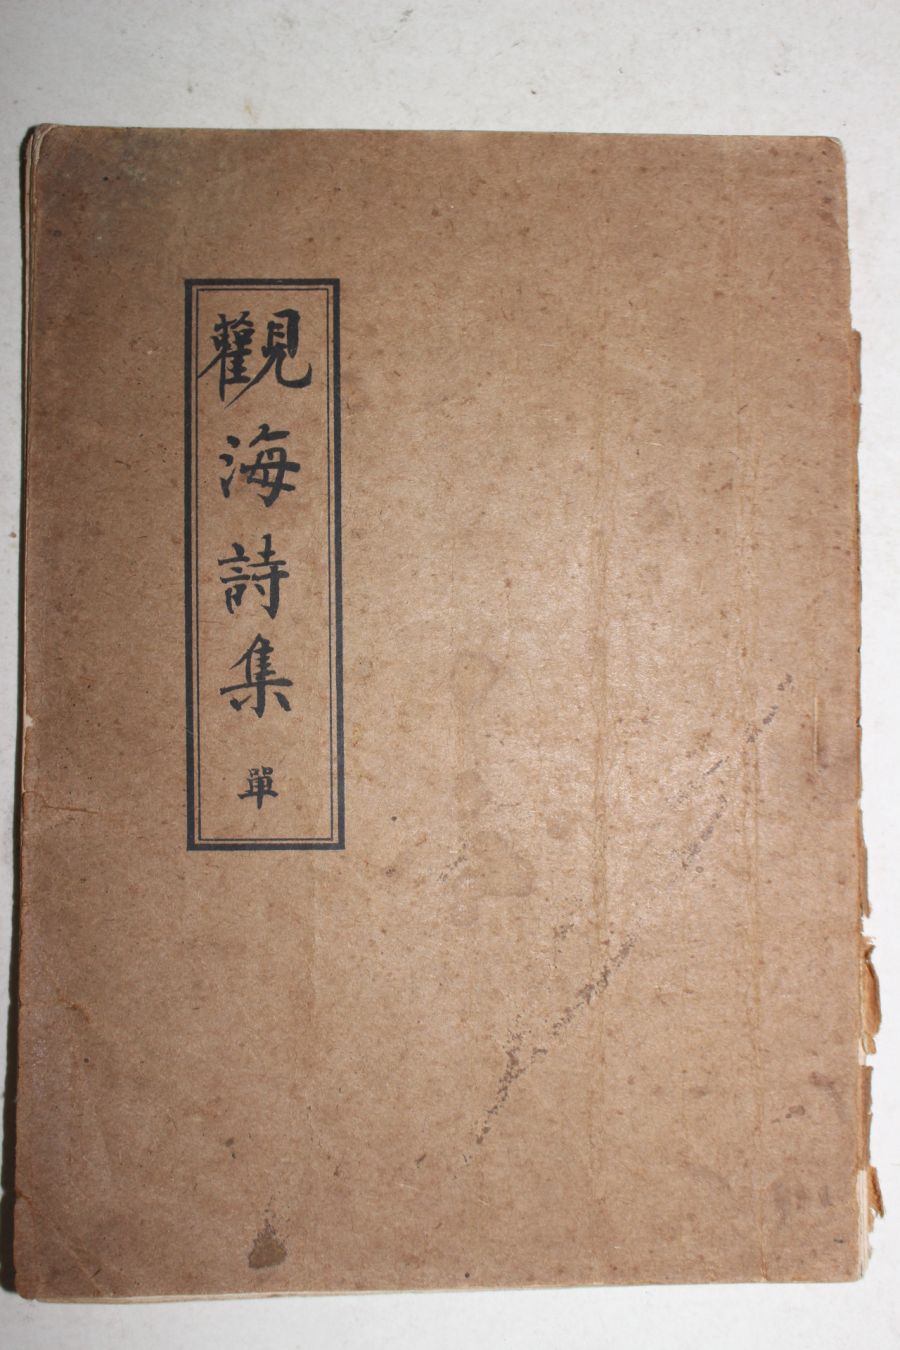 觀海詩集 單